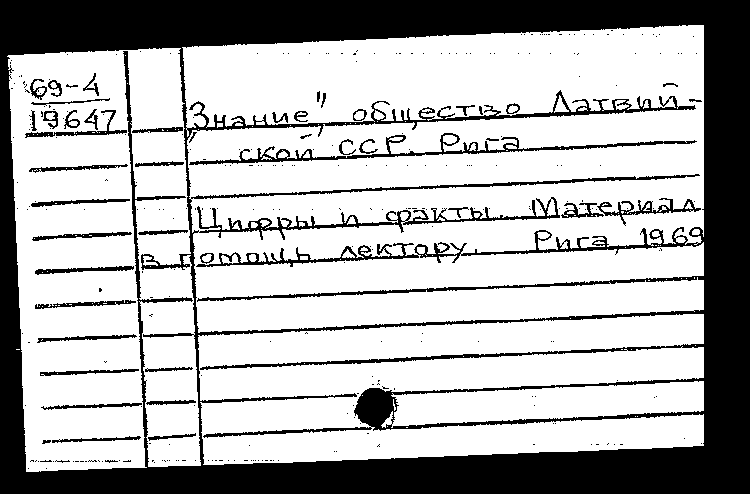 69-4
19647
„Знание", общество Латвий-
ской ССР. Рига
Цифры и факты. Материал
в помощь лектору. Рига, 1969